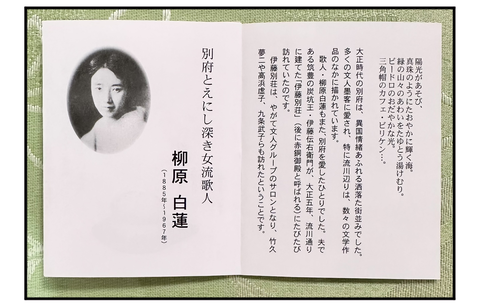 陽光があそび、
真珠のようにたおやかに輝く海、
緑の山々のあわいをたゆとう湯けむり。
ビードロのおだやかな光。
三角帽のカフェ・ビリケン…。
大正時代の別府は、異国情緒あふれる洒落た街並みでした。
多くの文人墨客に愛され、特に流川辺りは、数々の文学作
品のなかに描かれています。
歌人・柳原白蓮もまた、別府を愛したひとりでした。夫で
ある筑豊の炭坑王・伊藤伝右衛門が、大正五年、流川通り
に建てた「伊藤別荘」（後に赤銅御殿と呼ばれる）にたびたび
訪れていたのです。
伊藤別荘は、やがて文人グループのサロンとなり、竹久
夢二や高浜虚子、九条武子らも訪れたということです。
別府とえにし深き女流歌人
柳原 白蓮
（1885年～1967年）